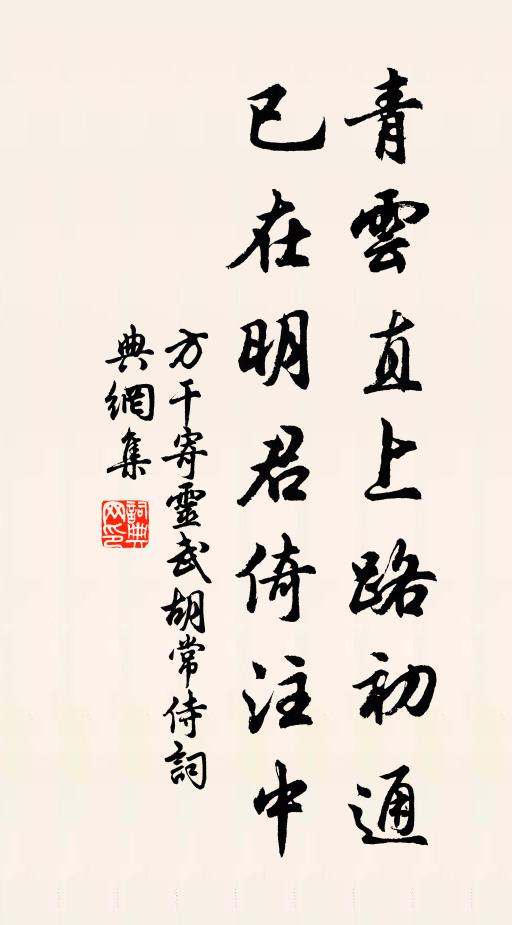 青雲直上路初通
已在明君倚注中
方干寄靈武胡常侍詞
典網集
詞典网印